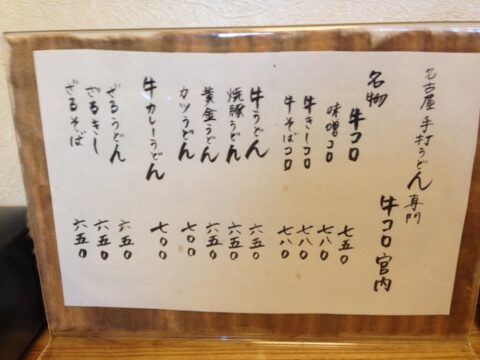 名古屋手打うどん専門
牛コロ 宮内
名物 牛コロ 七五〇
味噌コロ 七八〇
牛きしコロ 七八〇
牛そばコロ 七八〇
牛うどん 六五〇
焼豚うどん 六五〇
黄金うどん 六五〇
カツうどん 七〇〇
牛カレーうどん 七〇〇
ざるうどん 六五〇
ざるきし 六五〇
ざるそば 六五〇